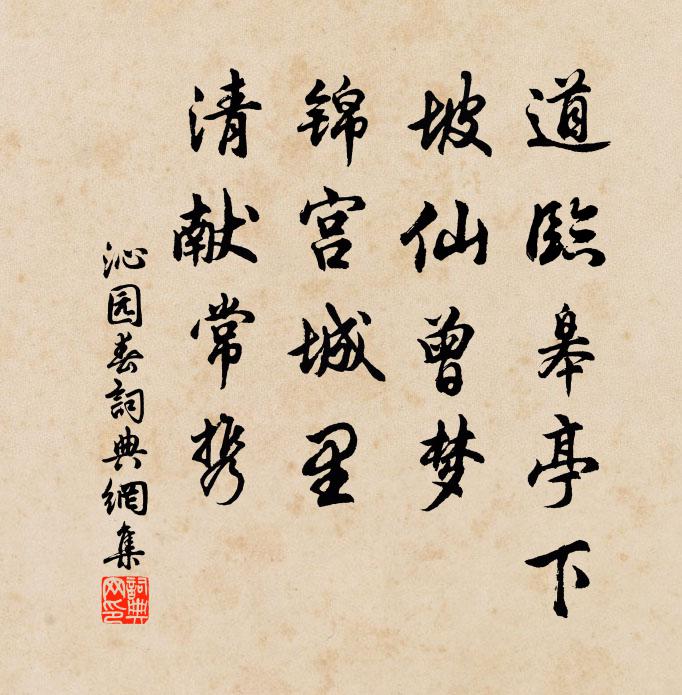 道臨皋亭下
坡仙曾梦
锦宫城里
清献常携
沁园春詞典網集
詞典网印